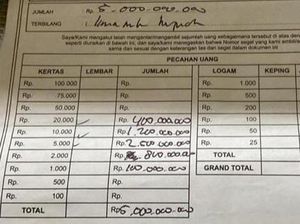 JUMLAH Rp. 5.000.000.000
TERBILANG :
Saya/Kami mengakui telah mengambil sejumlah uang sebagaimana tersebut di atas den
seperti diuraikan di bawah ini, dan saya/kami menegaskan bahwa Nomor segel yang kami ambil
sama dan sesuai dengan keterangan dan segel dalam dokumen ini
PECAHAN UANG
KERTAS LEMBAR JUMLAH LOGAM KEPING
Rp. 100.000 Rp. Rp. 1.000
Rp. 75.000 Rp. Rp. 500
Rp. 50.000 Rp. Rp. 200
Rp. 20.000 Rp. 400.000.000 Rp. 100
Rp. 10.000 Rp. 1.200.000.000 Rp. 50
Rp. 5.000 Rp. 2.500.000.000 Rp. 25
Rp. 2.000 Rp. 800.000.000 TOTAL
Rp. 1.000 Rp. 100.000.000 GRAND TOTAL
Rp. 500 Rp.
Rp. 100 Rp.
TOTAL Rp 5.000.000.000